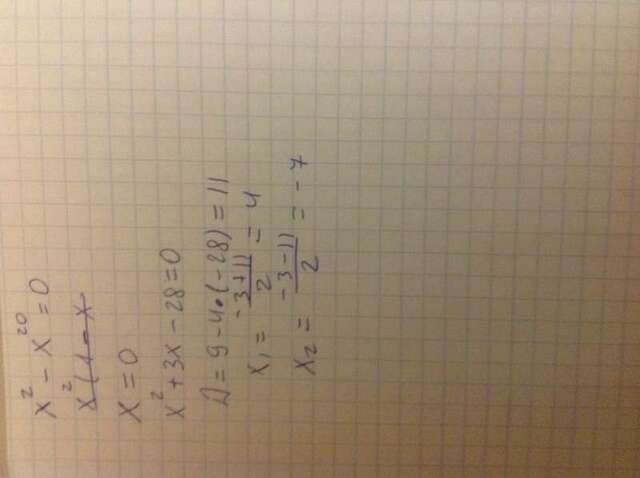 x² - x²⁰ = 0
x² (1 - x
x = 0
x² + 3x - 28 = 0
D = 9 - 4 • (-28) = 11
x₁ = (-3+11)/2 = 4
x₂ = (-3-11)/2 = -7